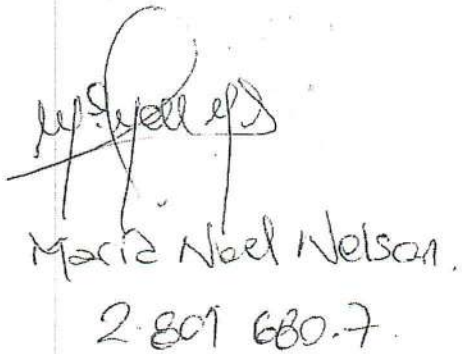 Maria Noel Nelson.
2.801 680.7.